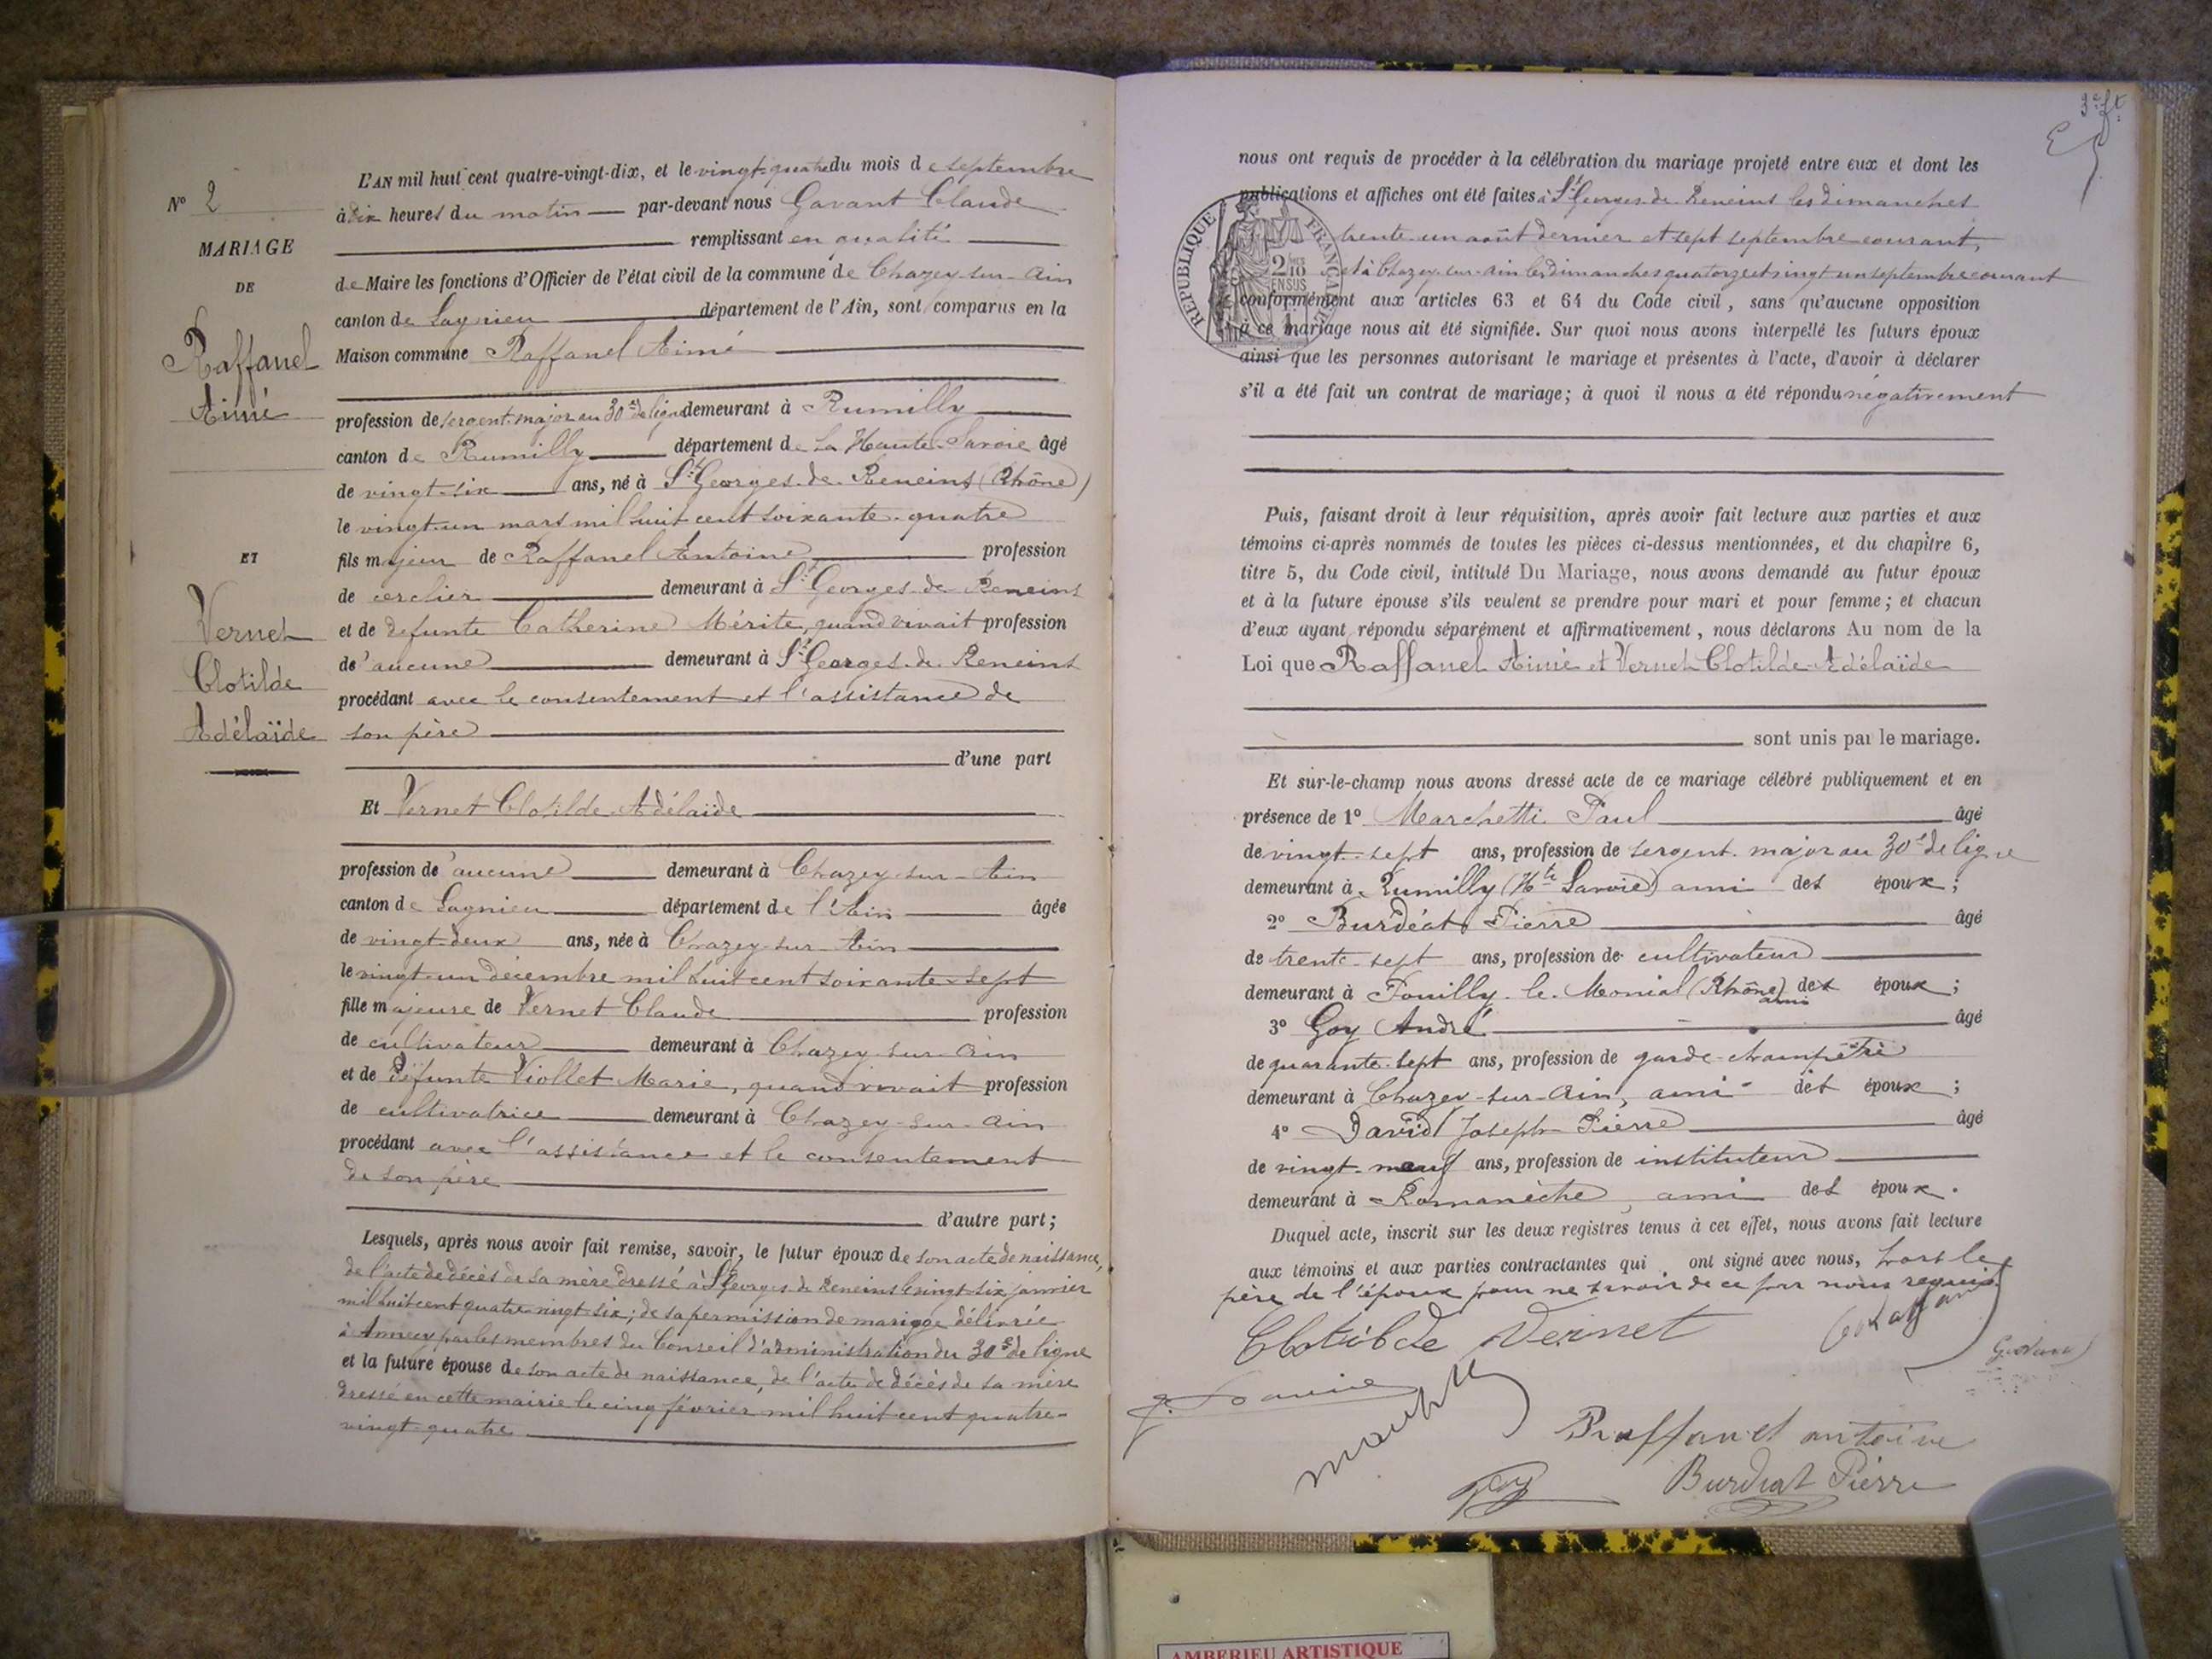 N° 2
MARIAGE
DE
Raffanel
Aimé
ET
Vernet
Clotilde
Adélaïde
L'AN mil huit cent quatre-vingt-dix, et le vingt-quatre du mois de septembre
à dix heures du matin par-devant nous Gavant Claude
remplissant en qualité
de Maire les fonctions d'Officier de l'état civil de la commune de Chazey-sur-Ain
canton de Lagnieu département de l'Ain, sont comparus en la
Maison commune Raffanel Aimé
profession de sergent-major au 30e de ligne demeurant à Rumilly
canton de Rumilly département de la Haute-Savoie âgé
de vingt-six ans, né à St Georges-de-Reneins (Rhône)
le vingt-un mars mil huit cent soixante-quatre
fils majeur de Raffanel Antoine profession
de cerclier demeurant à St Georges-de-Reneins
et de défunte Catherine Mérite, quand vivait profession
de aucune demeurant à St Georges-de-Reneins
procédant avec le consentement et l'assistance de
son père
d'une part
Et Vernet Clotilde-Adélaïde
profession de aucune demeurant à Chazey-sur-Ain
canton de Lagnieu département de l'Ain âgée
de vingt-deux ans, née à Chazey-sur-Ain
le vingt-un décembre mil huit cent soixante-sept
fille majeure de Vernet Claude profession
de cultivateur demeurant à Chazey-sur-Ain
et de défunte Viollet Marie, quand vivait profession
de cultivatrice demeurant à Chazey-sur-Ain
procédant avec l'assistance et le consentement
de son père
d'autre part;
Lesquels, après nous avoir fait remise, savoir, le futur époux de son acte de naissance,
de l'acte de décès de sa mère dressé à St Georges-de-Reneins le vingt-six janvier
mil huit cent quatre-vingt-six; de sa permission de mariage délivrée
à Annecy par les membres du Conseil d'administration du 30e de ligne
et la future épouse de son acte de naissance, de l'acte de décès de sa mère
dressé en cette mairie le cinq février mil huit cent quatre-
vingt-quatre
nous ont requis de procéder à la célébration du mariage projeté entre eux et dont les
publications et affiches ont été faites à St Georges-de-Reneins les dimanches
trente-un août dernier et sept septembre courant,
et à Chazey-sur-Ain les dimanches quatorze et vingt-un septembre courant
conformément aux articles 63 et 64 du Code civil, sans qu'aucune opposition
à ce mariage nous ait été signifiée. Sur quoi nous avons interpellé les futurs époux
ainsi que les personnes autorisant le mariage et présentes à l'acte, d'avoir à déclarer
s'il a été fait un contrat de mariage; à quoi il nous a été répondu négativement
REPUBLIQUE FRANÇAISE
2/10 EN SUS
Puis, faisant droit à leur réquisition, après avoir fait lecture aux parties et aux
témoins ci-après nommés de toutes les pièces ci-dessus mentionnées, et du chapitre 6,
titre 5, du Code civil, intitulé Du Mariage, nous avons demandé au futur époux
et à la future épouse s'ils veulent se prendre pour mari et pour femme; et chacun
d'eux ayant répondu séparément et affirmativement, nous déclarons Au nom de la
Loi que Raffanel Aimé et Vernet Clotilde-Adélaïde
sont unis par le mariage.
Et sur-le-champ nous avons dressé acte de ce mariage célébré publiquement et en
présence de 1° Marchetti Paul âgé
de vingt-sept ans, profession de sergent-major au 30e de ligne
demeurant à Rumilly (Hte Savoie) ami des époux;
2° Burdéat Pierre âgé
de trente-sept ans, profession de cultivateur
demeurant à Pouilly-le-Monial (Rhône) ami des époux;
3° Goy André âgé
de quarante-sept ans, profession de garde-champêtre
demeurant à Chazey-sur-Ain, ami des époux;
4° David Joseph-Pierre âgé
de vingt-neuf ans, profession de instituteur
demeurant à Romanèche, ami des époux.
Duquel acte, inscrit sur les deux registres tenus à cet effet, nous avons fait lecture
aux témoins et aux parties contractantes qui ont signé avec nous, hors le
père de l'épouse pour ne savoir de ce par nous requis
Clotilde Vernet
Raffanel antoine
Burdéat Pierre
Goy
AMBERIEU ARTISTIQUE